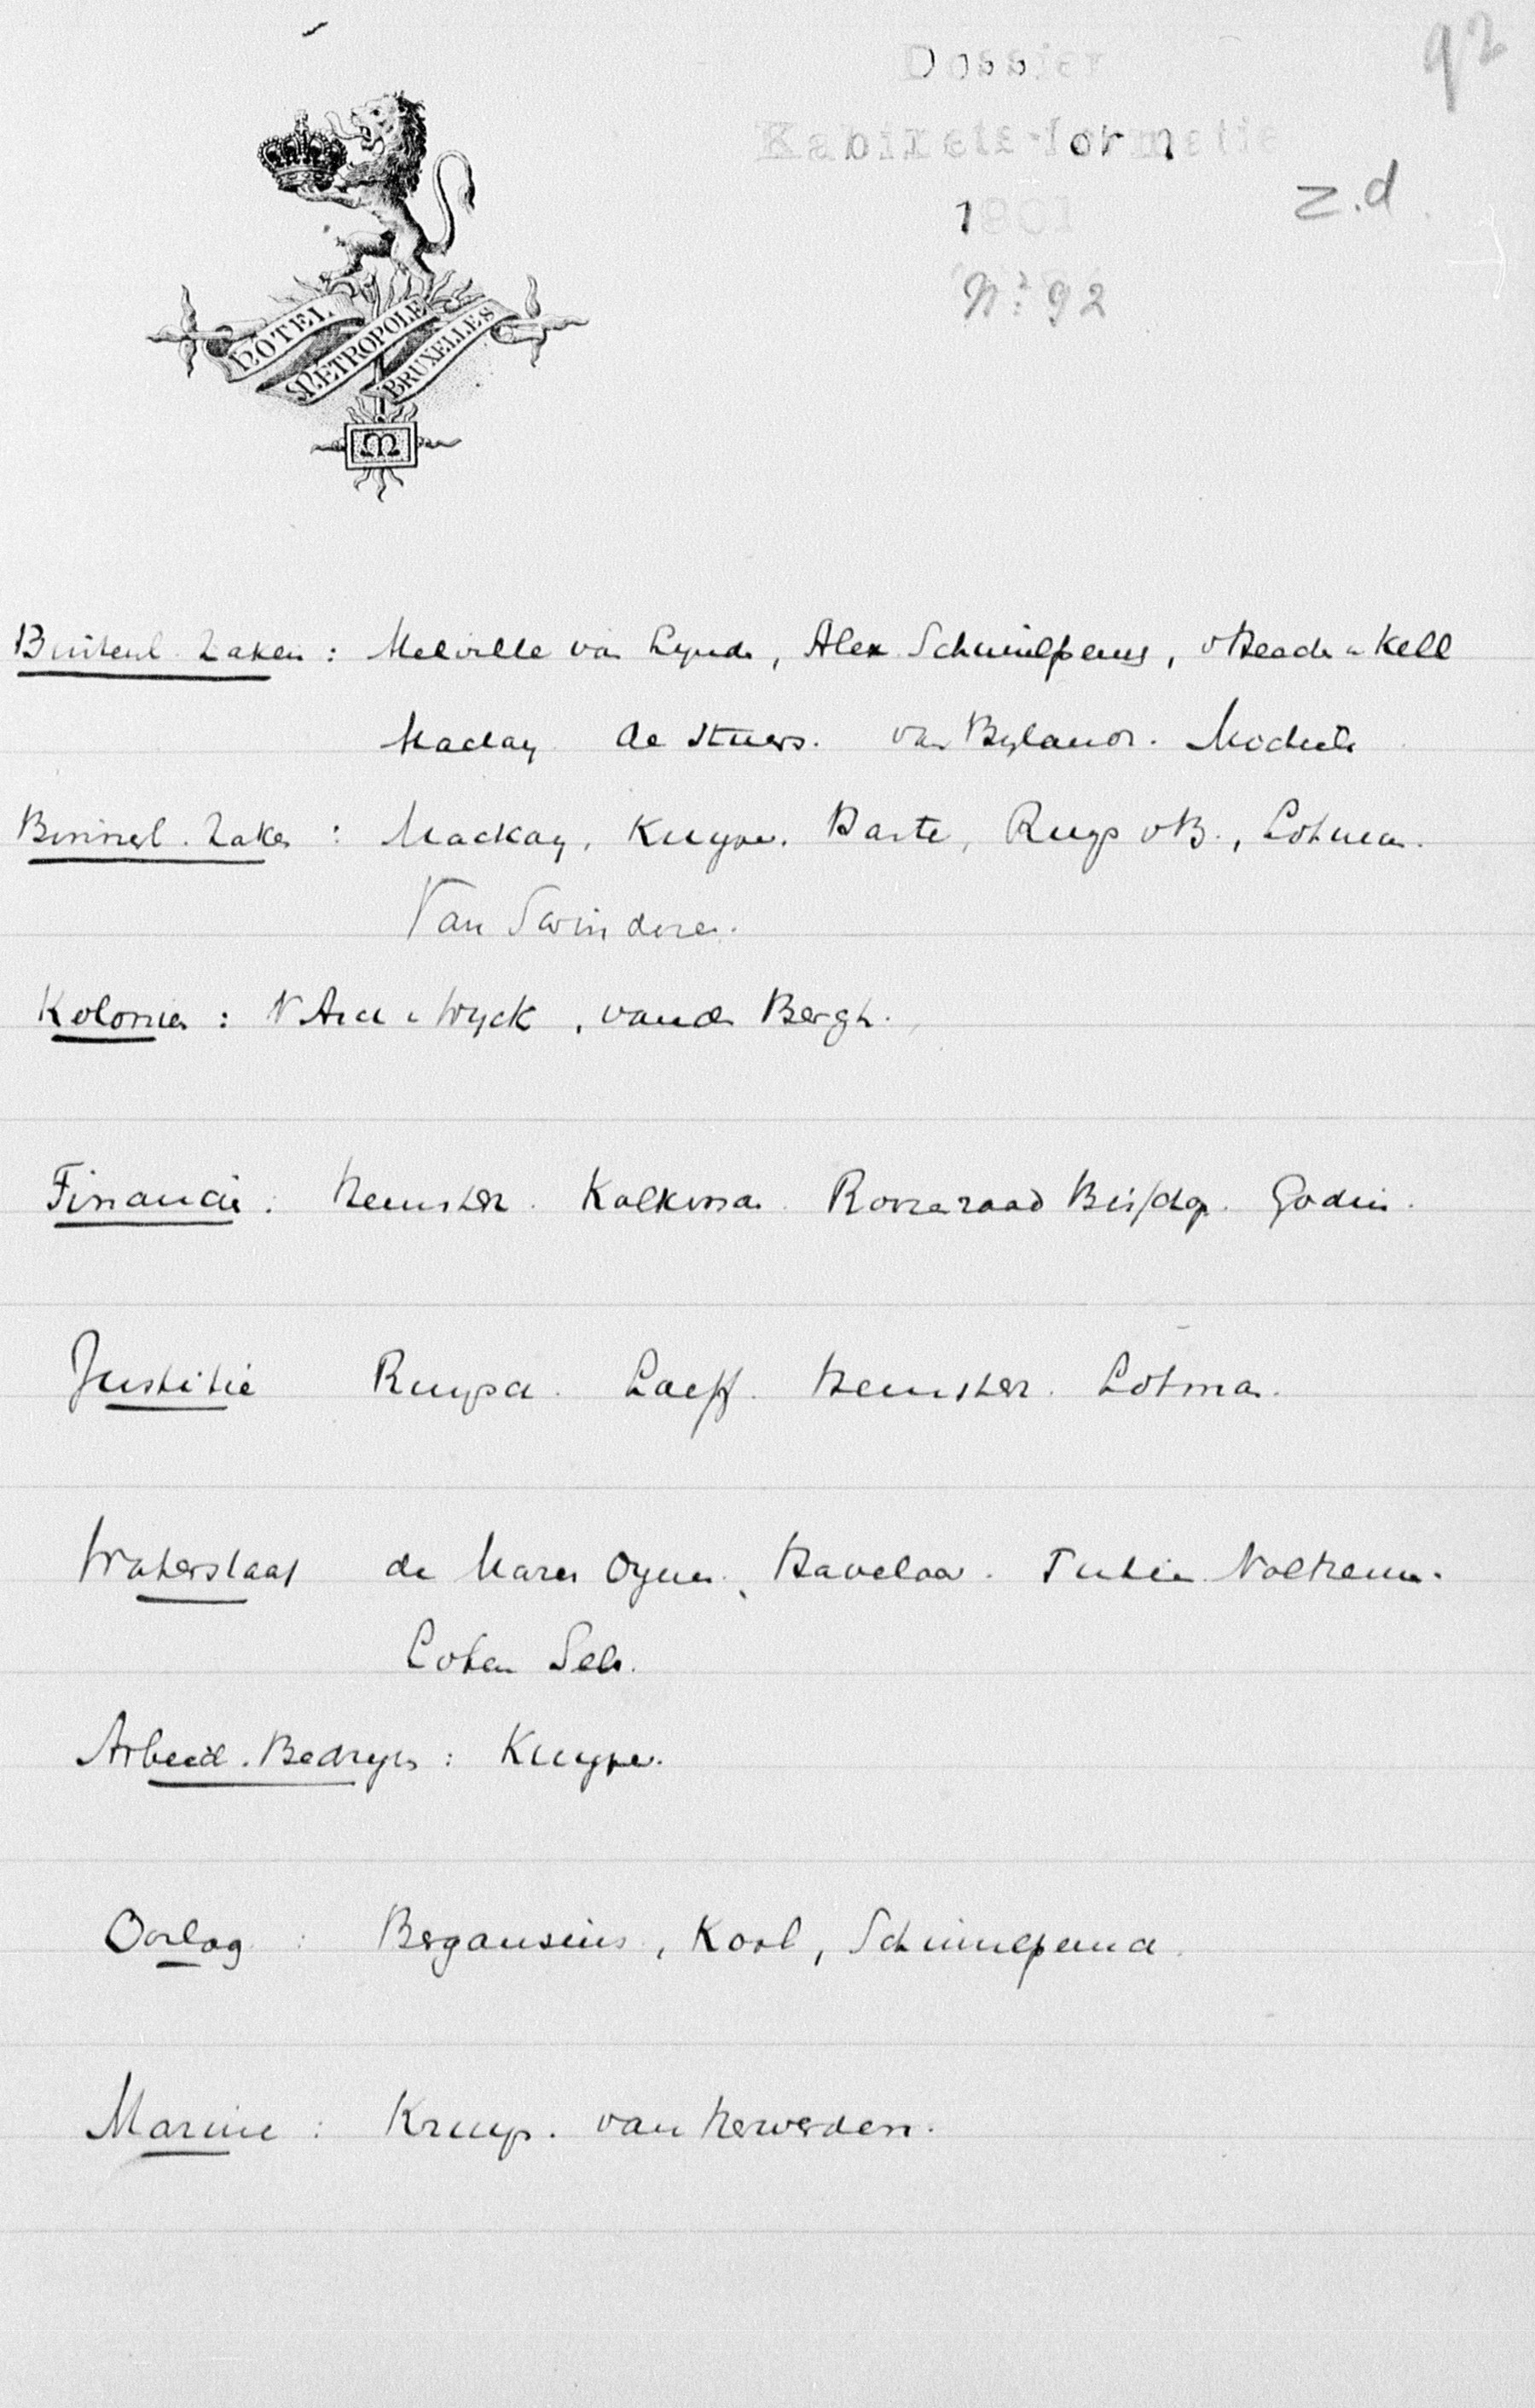 92
Dossier
Kabinets-formatie
1901
z.d.
No. 92
HOTEL
METROPOLE
BRUXELLES
M
Buitenl. Zaken : Melville van Lynde, Alex Schimmelpenn, v Heeckeren Kell
Mackay de Stuers. van Byland.
Binnenl. Zaken : Mackay, Kuyper. Harte, Ruys v B., Lohman.
Van Swinderen.
Kolonien : V. Aerdn Wyck, vanden Bergh.
Financien : Heemsker. Kolkman. Rovaraad Bisschop. Godin.
Justitie Ruysch. Loeff. Heemsker. Lohman.
Waterstaat de Marez Oyens. Havelaar. Tutein Nolthenius.
Lohen Sels.
Arbeid. Bedryfs : Kuyper.
Oorlog : Bergansius, Kool, Schimmelpenn
Marine : Kruys. van Herwerden.